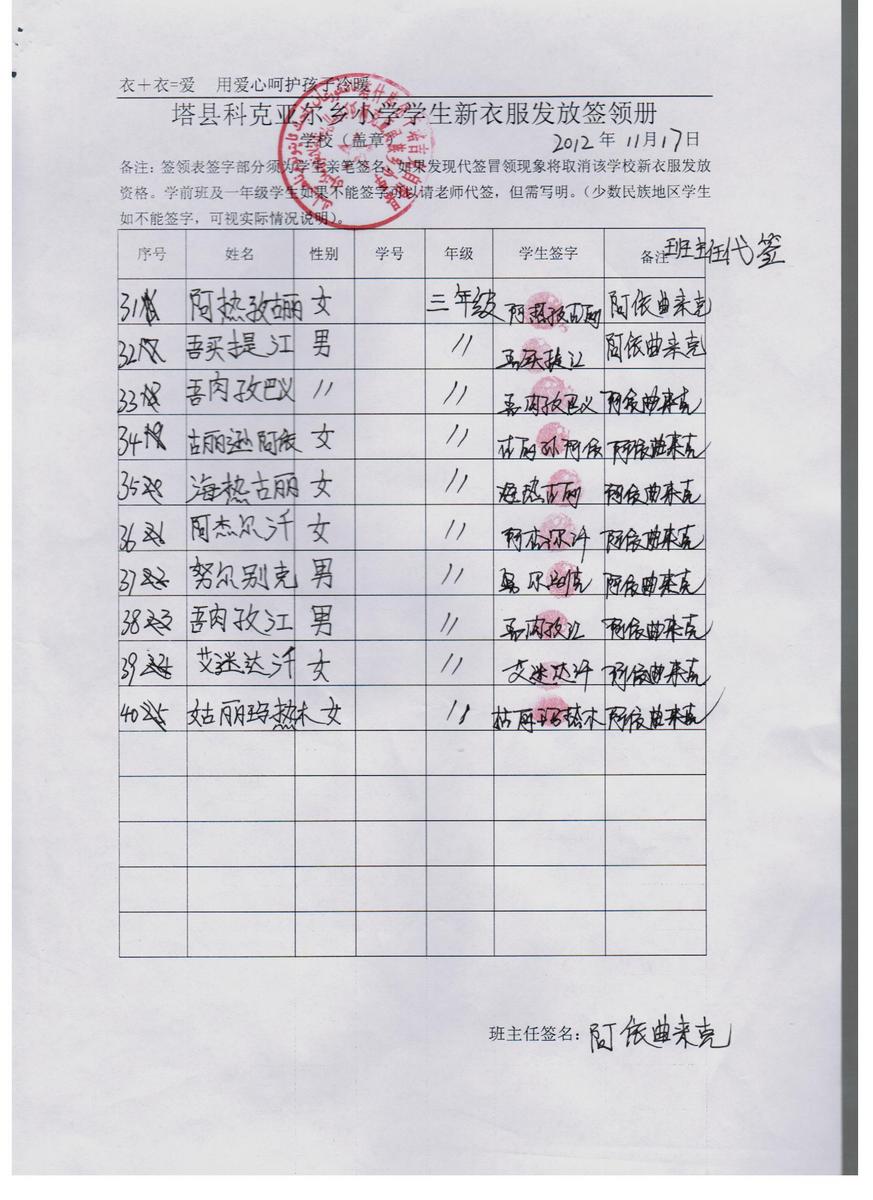 衣+衣=爱 用爱心呵护孩子冷暖
塔县科克亚尔乡小学学生新衣服发放签领册
学校（盖章） 2012年11月17日
备注：签领表签字部分须为学生亲笔签名，如果发现代签冒领现象将取消该学校新衣服发放
资格。学前班及一年级学生如果不能签字可以请老师代签，但需写明。（少数民族地区学生
如不能签字，可视实际情况说明）。
序号 姓名 性别 学号 年级 学生签字 备注 班主任代签
31 阿热孜古丽 女 三年级 阿热孜古丽 阿依曲来克
32 吾买提江 男 〃 吾买提江 阿依曲来克
33 吾肉孜巴义 〃 〃 吾肉孜巴义 阿依曲来克
34 古丽逊阿依 女 〃 阿依 阿依曲来克
35 海热古丽 女 〃 海热古丽 阿依曲来克
36 阿杰尔汗 女 〃 阿杰尔汗 阿依曲来克
37 努尔别克 男 〃 努尔别克 阿依曲来克
38 吾肉孜江 男 〃 吾肉孜江 阿依曲来克
39 艾迷达汗 女 〃 艾迷达汗 阿依曲来克
40 姑丽玛热木 女 〃 姑丽玛热木 阿依曲来克
班主任签名：阿依曲来克